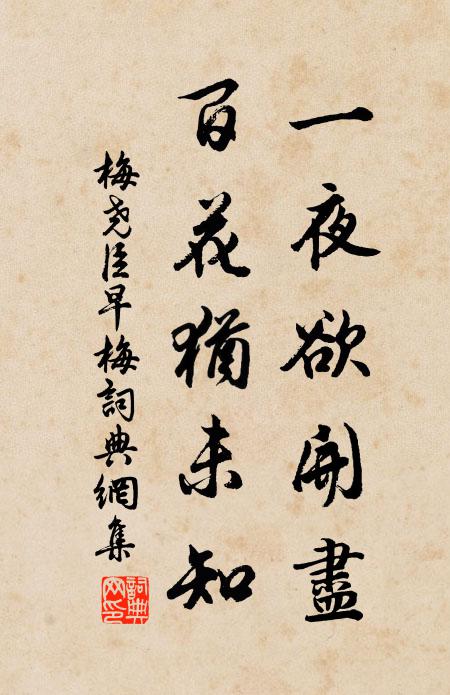 一夜欲開盡
百花猶未知
梅堯臣早梅詞典網集
詞典網印